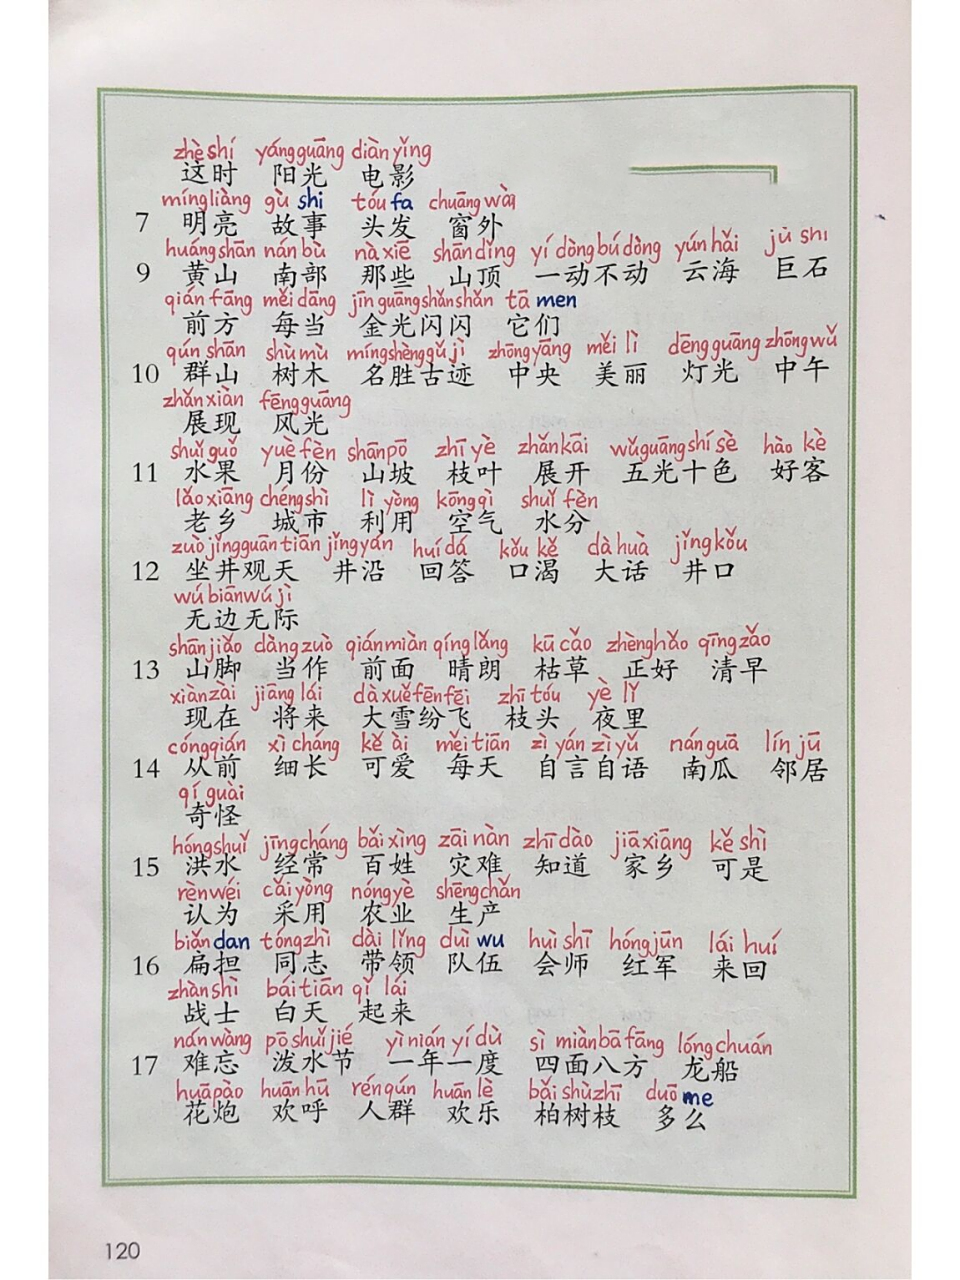 zhè shí yáng guāng diàn yǐng
这时 阳光 电影
míng liàng gù shi tóu fa chuāng wài
7 明亮 故事 头发 窗外
huáng shān nán bù nà xiē shān dǐng yí dòng bú dòng yún hǎi jù shí
9 黄山 南部 那些 山顶 一动不动 云海 巨石
qián fāng měi dāng jīn guāng shǎn shǎn tā men
前方 每当 金光闪闪 它们
qún shān shù mù míng shèng gǔ jì zhōng yāng měi lì dēng guāng zhōng wǔ
10 群山 树木 名胜古迹 中央 美丽 灯光 中午
zhǎn xiàn fēng guāng
展现 风光
shuǐ guǒ yuè fèn shān pō zhī yè zhǎn kāi wǔ guāng shí sè hào kè
11 水果 月份 山坡 枝叶 展开 五光十色 好客
lǎo xiāng chéng shì lì yòng kōng qì shuǐ fèn
老乡 城市 利用 空气 水分
zuò jǐng guān tiān jǐng yán huí dá kǒu kě dà huà jǐng kǒu
12 坐井观天 井沿 回答 口渴 大话 井口
wú biān wú jì
无边无际
shān jiǎo dàng zuò qián miàn qíng lǎng kū cǎo zhèng hǎo qīng zǎo
13 山脚 当作 前面 晴朗 枯草 正好 清早
xiàn zài jiāng lái dà xuě fēn fēi zhī tóu yè lǐ
现在 将来 大雪纷飞 枝头 夜里
cóng qián xì cháng kě ài měi tiān zì yán zì yǔ nán guā lín jū
14 从前 细长 可爱 每天 自言自语 南瓜 邻居
qí guài
奇怪
hóng shuǐ jīng cháng bǎi xìng zāi nàn zhī dào jiā xiāng kě shì
15 洪水 经常 百姓 灾难 知道 家乡 可是
rèn wéi cǎi yòng nóng yè shēng chǎn
认为 采用 农业 生产
biǎn dan tóng zhì dài lǐng duì wu huì shī hóng jūn lái huí
16 扁担 同志 带领 队伍 会师 红军 来回
zhàn shì bái tiān qǐ lái
战士 白天 起来
nán wàng pō shuǐ jié yì nián yí dù sì miàn bā fāng lóng chuán
17 难忘 泼水节 一年一度 四面八方 龙船
huā pào huān hū rén qún huān lè bǎi shù zhī duō me
花炮 欢呼 人群 欢乐 柏树枝 多么
120